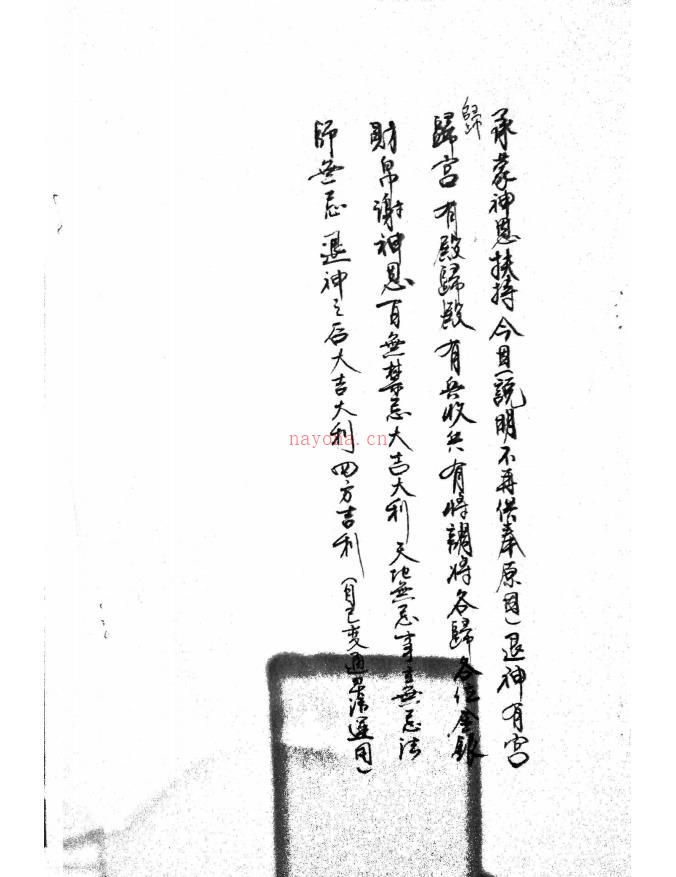 承蒙神恩扶持今日(說明不再供奉原因)退神有宮
歸
歸宮有殿歸殿有兵收兵有將調將各歸各位金銀
財帛謝神恩百無禁忌大吉大利天地無忌事主無忌法
師無忌退神之后大吉大利四方吉利(自己変通 選用)
nayona.cn